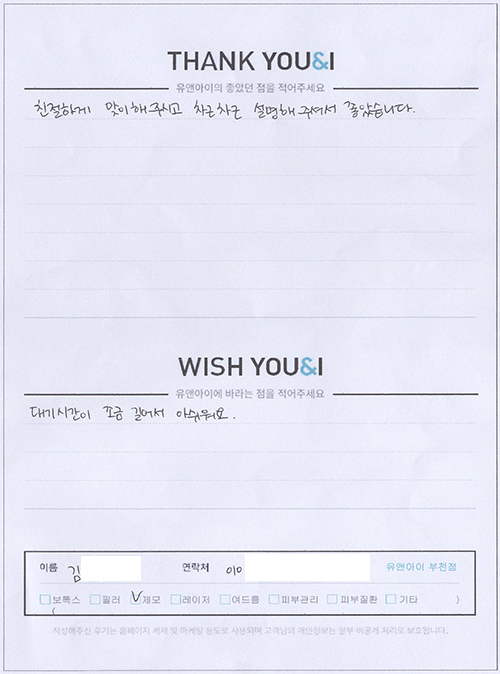 THANK YOU&I
유앤아이의 좋았던 점을 적어주세요
친절하게 맞이해주시고 차근차근 설명해주셔서 좋았습니다.
WISH YOU&I
유앤아이에 바라는 점을 적어주세요
대기시간이 조금 길어서 아쉬워요.
이름 김 연락처 010 유앤아이 부천점
보톡스 필러 V제모 레이저 여드름 피부관리 피부질환 기타 ( )
작성해주신 후기는 홈페이지 게재 및 마케팅 용도로 사용되며 고객님의 개인정보는 일부 비공개 처리로 보호됩니다.